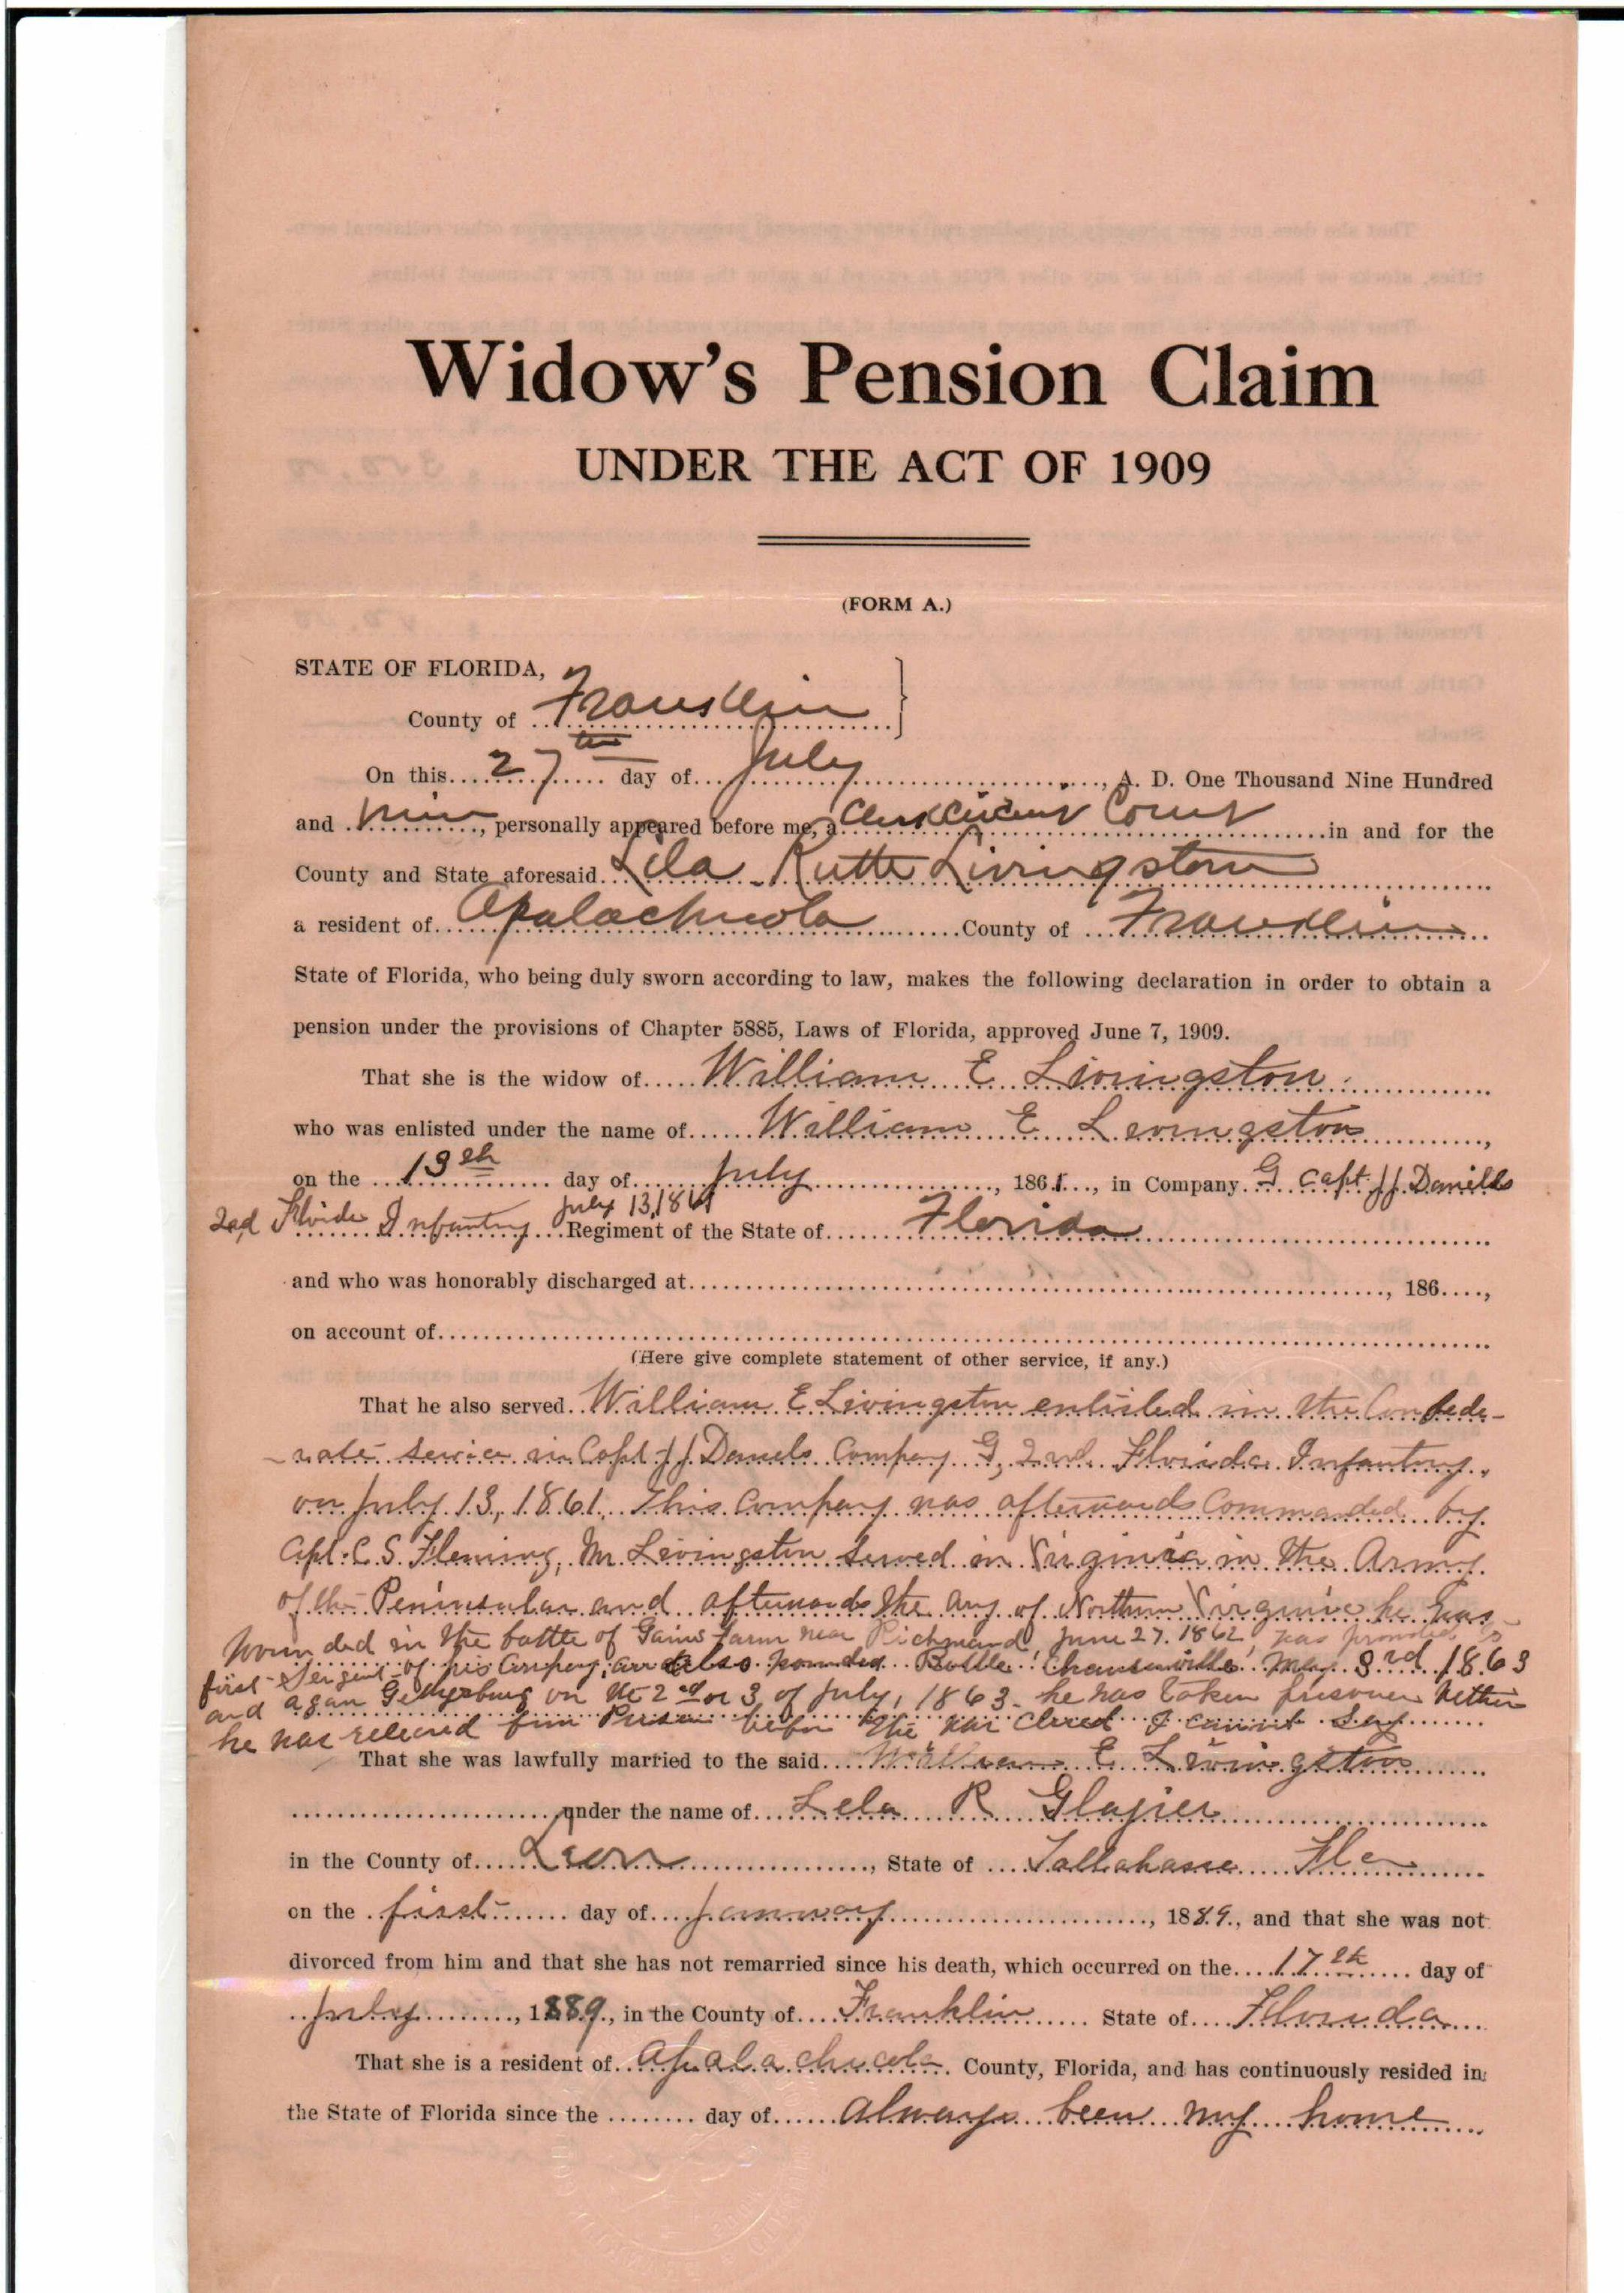 Widow's Pension Claim
UNDER THE ACT OF 1909
(FORM A.)
STATE OF FLORIDA,
County of Franklin
On this 27th day of July, A. D. One Thousand Nine Hundred
and nine, personally appeared before me, a Clerk Circuit Court in and for the
County and State aforesaid Lila Ruth Livingston
a resident of Apalachicola County of Franklin
State of Florida, who being duly sworn according to law, makes the following declaration in order to obtain a
pension under the provisions of Chapter 5885, Laws of Florida, approved June 7, 1909.
That she is the widow of William E Livingston
who was enlisted under the name of William E Livingston,
on the 13th day of July, 1861, in Company G Capt JJ Daniels
July 13, 1861
2nd Florida Infantry Regiment of the State of Florida
and who was honorably discharged at, 186,
on account of
(Here give complete statement of other service, if any.)
That he also served William E Livingston enlisted in the Confede-
rate service in Capt JJ Daniels Company G, 2nd Florida Infantry,
on July 13, 1861. This Company was afterwards Commanded by
Capt. C. S. Fleming, Mr Livingston served in Virginia in the Army
of the Peninsular and afterwards the Army of Northern Virginia he was
wounded in the battle of Gains farm near Richmond, June 27. 1862, was promoted to
first Sergent of his Company, and also wounded Battle Chancerville May 3rd 1863
and again Gettysburg on the 2nd or 3 of July, 1863. he was taken prisoner Wether
he was releaced from Prison before the war Closed I cannot Say
That she was lawfully married to the said William E Livingston
under the name of Lela R Glazier
in the County of Leon, State of Tallahasse Fla
on the first day of January, 1889, and that she was not
divorced from him and that she has not remarried since his death, which occurred on the 17th day of
July, 1889, in the County of Franklin State of Florida
That she is a resident of Apalachicola County, Florida, and has continuously resided in
the State of Florida since the day of always been my home